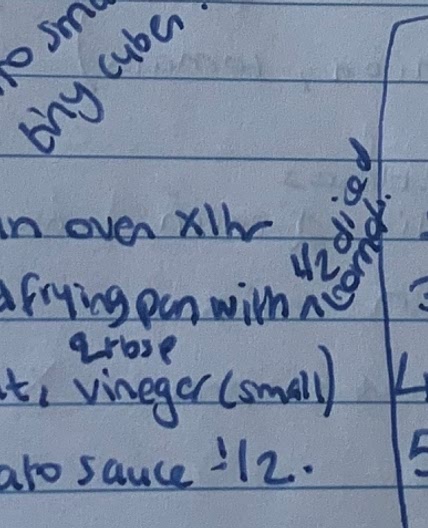 to sma
tiny cubes.
in oven x1hr
a frying pan with 1/2 diced
2tbsp
t, vineger (small)
ato sauce 1/2.
3
4
5